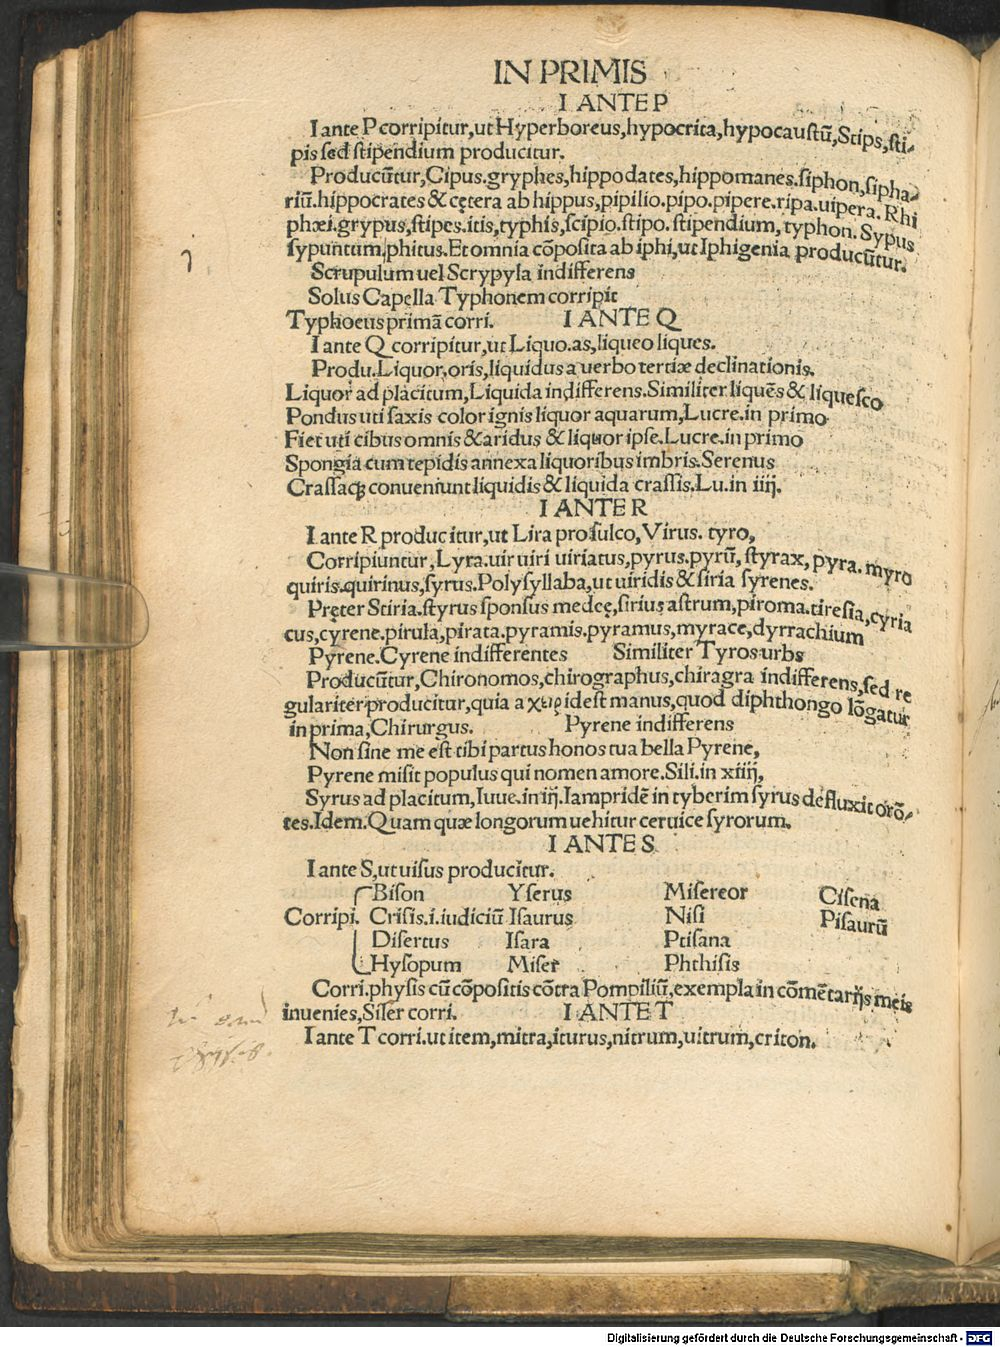 IN PRIMIS
I ANTE P
I ante P corripitur,ut Hyperboreus,hypocrita,hypocaustū,Stips,sti-
pis sed stipendium producitur.
Producūtur,Cipus.gryphes,hippodates,hippomanes.siphon,sipha-
riū.hippocrates & cętera ab hippus,pipilio.pipo.pipere.ripa.uipera.Rhi
phæi.grypus,stipes.itis,typhis,scipio.stipo.stipendium,typhon.Sypus
sypuntum,phitus.Et omnia cōposita ab iphi,ut Iphigenia producūtur.
Scrupulum uel Scrypyla indifferens
Solus Capella Typhonem corripit
Typhoeus primā corri. I ANTE Q
I ante Q corripitur,ut Liquo.as,liqueo liques.
Produ.Liquor,oris,liquidus a uerbo tertiæ declinationis.
Liquor ad placitum,Liquida indifferens.Similiter liquēs & liquesco
Pondus uti saxis color ignis liquor aquarum,Lucre.in primo
Fiet uti cibus omnis & aridus & liquor ipse.Lucre.in primo
Spongia cum tepidis annexa liquoribus imbris.Serenus
Crassaqȝ conueniunt liquidis & liquida crassis.Lu.in iiij.
I ANTE R
I ante R producitur,ut Lira pro sulco,Virus. tyro,
Corripiuntur,Lyra.uir uiri uiriatus,pyrus.pyrū,styrax,pyra.myro
quiris.quirinus,syrus.Polysyllaba,ut uiridis & siria syrenes.
Pręter Stiria.styrus sponsus medeę,sirius astrum,piroma.tiresia,cyria
cus,cyrene.pirula,pirata.pyramis.pyramus,myrace,dyrrachium
Pyrene.Cyrene indifferentes Similiter Tyros urbs
Producūtur,Chironomos,chirographus,chiragra indifferens,sed re
gulariter producitur,quia a χειρ idest manus,quod diphthongo lōgatur
in prima,Chirurgus. Pyrene indifferens
Non sine me est tibi partus honos tua bella Pyrene,
Pyrene misit populus qui nomen amore.Sili.in xiiij,
Syrus ad placitum,Iuue.in iij.Iampridē in tyberim syrus defluxit orō-
tes.Idem.Quam quæ longorum uehitur ceruice syrorum.
I ANTE S
I ante S,ut uisus producitur.
Bison Yserus Misereor Ciseria
Corripi. Crisis.i.iudiciū Isaurus Nisi Pisaurū
Disertus Isara Ptisana
Hysopum Miser Phthisis
Corri.physis cū cōpositis cōtra Pompiliū,exempla in cōmētarijs meis
inuenies,Siser corri. I ANTE T
I ante T corri.ut item,mitra,iturus,nitrum,uitrum,criton.
Digitalisierung gefördert durch die Deutsche Forschungsgemeinschaft - DFG